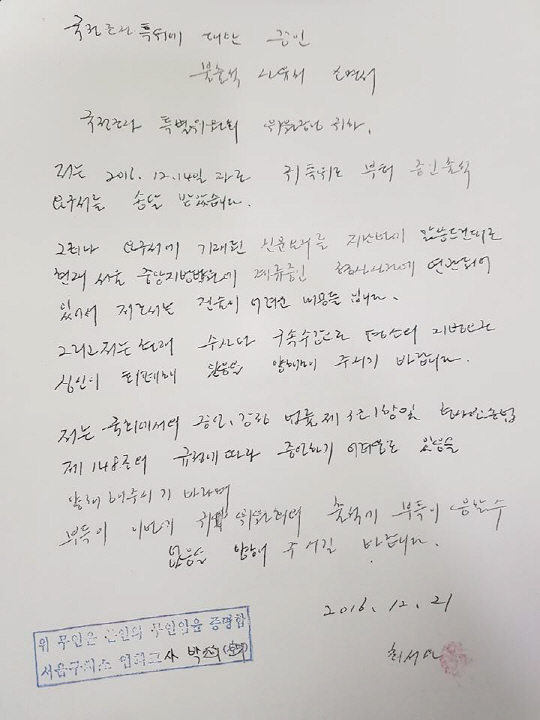 국정조사 특위에 대한 증인
불출석 사유서 소명서
국정조사 특별위원회 위원장님 귀하.
저는 2016. 12. 14일 귀 특위로 부터 증인출석
요구서를 송달 받았습니다.
그러나 요구서에 기재된 신문요지를
현재 서울 중앙지방법원에 계류중인 형사사건에 연관되어
있어서 저로서는 진술이 어려운 내용들 입니다.
그리고 저는 현재 수사와 구속수감으로 평소의 지병으로
심신이 피폐해 있음을 양해해 주시기 바랍니다.
저는 국회에서의 증언, 감정 법률 제3조1항 및 형사소송법
제148조의 규정에 따라 증언하기 어려움이 있음을
양해해주시기 바라며
부득이 이번에 귀 위원회에 출석에 부득이 응할수
없음을 양해 주시길 바랍니다.
2016. 12. 21
최서원
위 무인은 본인의 무인임을 증명함
서울구치소